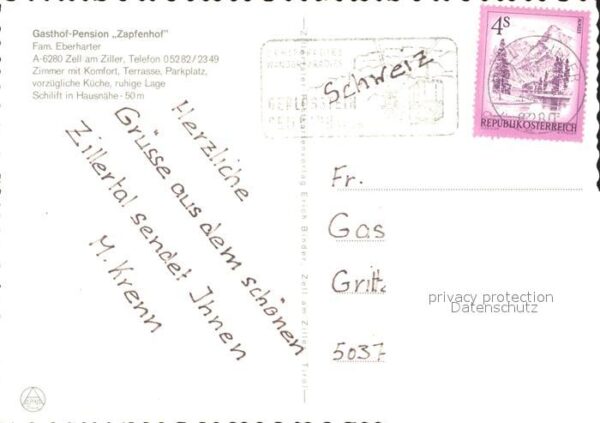 Gasthof-Pension „Zapfenhof"
Fam. Eberharter
A-6280 Zell am Ziller, Telefon 05282/2349
Zimmer mit Komfort, Terrasse, Parkplatz,
vorzügliche Küche, ruhige Lage
Schilift in Hausnähe - 50 m
Herzliche
Grüsse aus dem schönen
Zillertal sendet Ihnen
M. Krenn
Schweiz
4S
REPUBLIK ÖSTERREICH
6280
Erich Binder, Zell am Ziller, Tirol
Fr.
Gas
Gritt
5037
privacy protection
Datenschutz